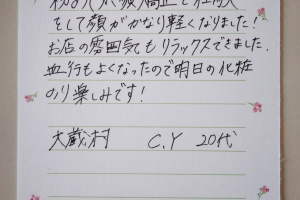 をして顔がかなり軽くなりました!
お店の雰囲気もリラックスできました.
血行もよくなったので明日の化粧
のり楽しみです!
大蔵村 C.Y 20代